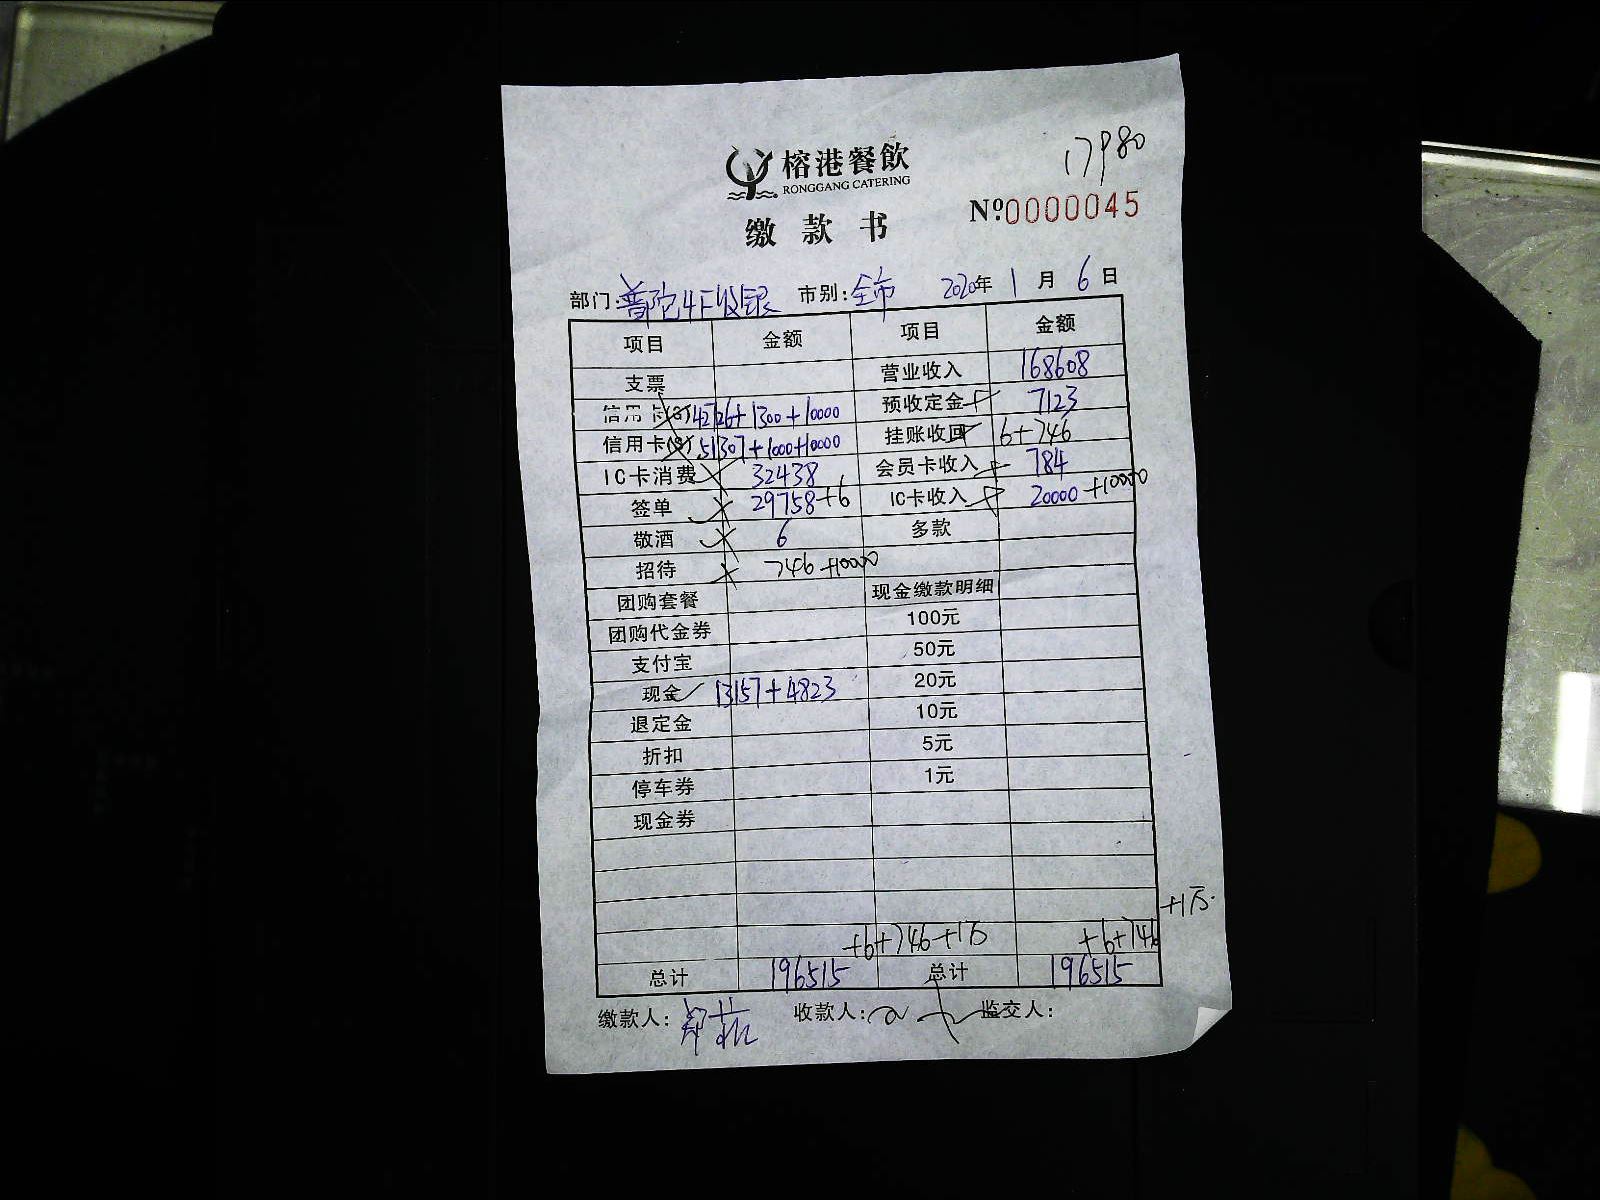 17980
榕港餐飲
RONGGANG CATERING
缴款书 Nº:0000045
部门:普陀4F收银 市别:全市 2020年1月6日
项目 金额 项目 金额
支票 营业收入 168608
信用卡(S) 42726+1300+10000 预收定金 7123
信用卡(S) 51307+1000+10000 挂账收回 6+746
IC卡消费 32438 会员卡收入 784
签单 29758+6 IC卡收入 20000+10000
敬酒 6 多款
招待 746+10000
团购套餐 现金缴款明细
团购代金券 100元
支付宝 50元
现金 13157+4823 20元
退定金 10元
折扣 5元
停车券 1元
现金券
+1万
+6+746+1万 +6+746
总计 196515 总计 196515
缴款人: 收款人: 监交人: